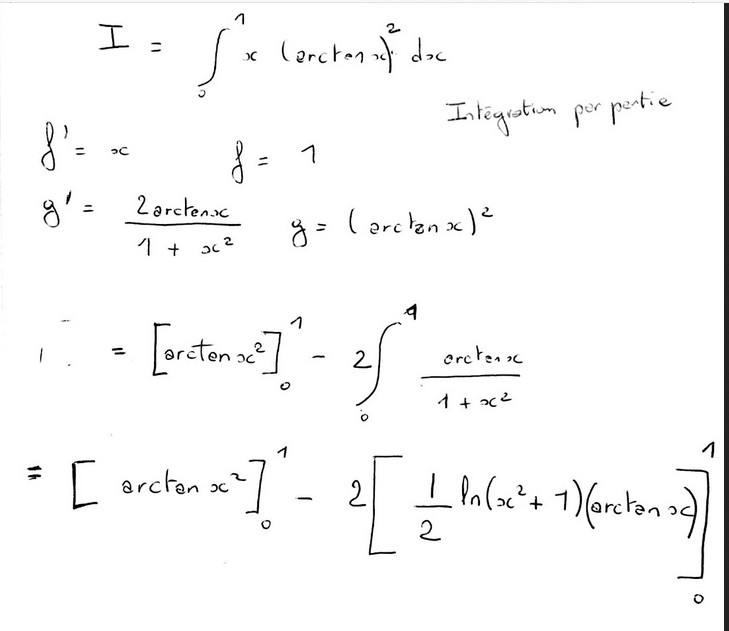 I = ∫₀¹ x (arctan x)² dx
Intégration par partie
f' = x f = 1
g' = 2arctanx / 1 + x² g = (arctan x)²
= [arctan x²]₀¹ - 2∫₀¹ arctan x / 1 + x²
= [arctan x²]₀¹ - 2[1/2 ln(x² + 1)(arctan x)]₀¹